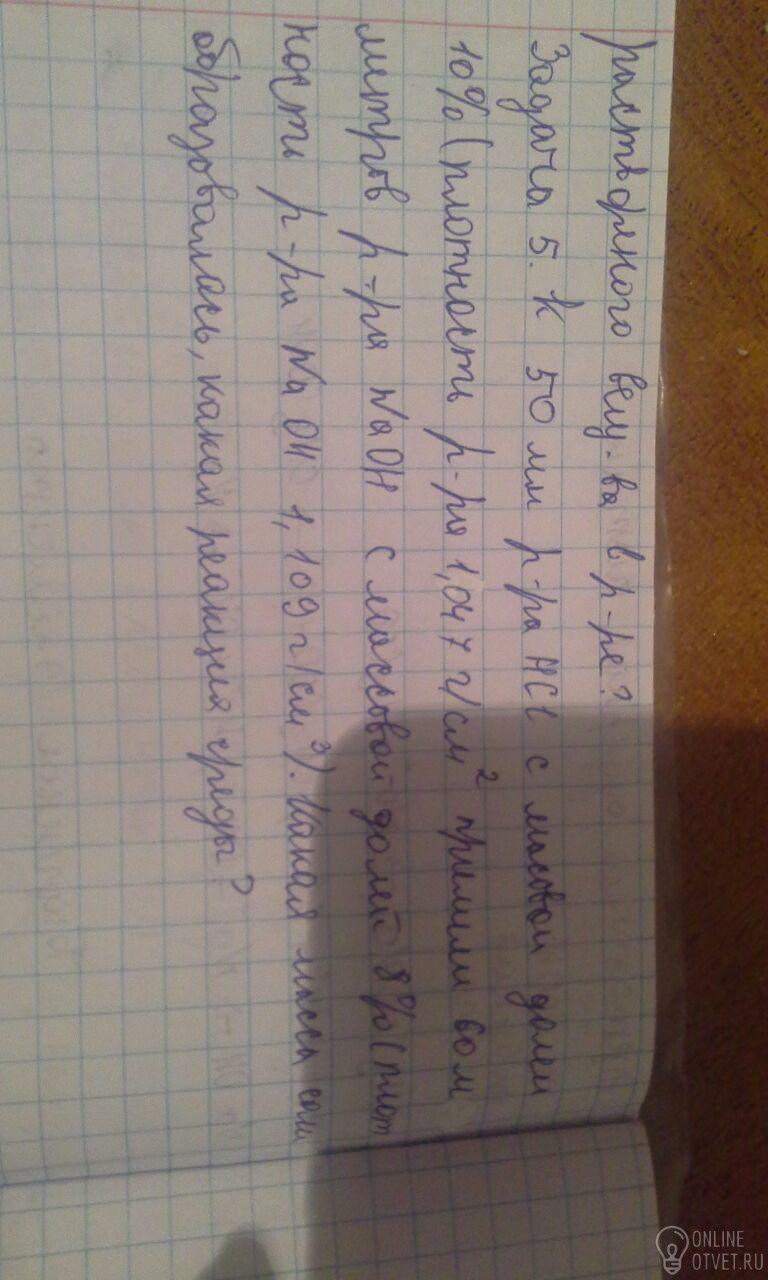 растворяного вещ-ва в р-ре?
Задача 5. К 50 мл р-ра HCl с масовой долей
10% (плотность р-ра 1,047 г/см² прилили 60 м
метров р-ра NaOH с массовой долей 8% (плот
ность р-ра NaOH 1,109 г/см³). Какая масса соли
образовалась, какая реакция среды?
ONLINE
OTVET.RU